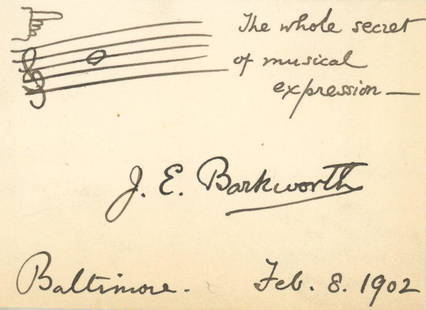 The whole secret
of musical
expression —
J. E. Barkworth
Baltimore. Feb. 8. 1902